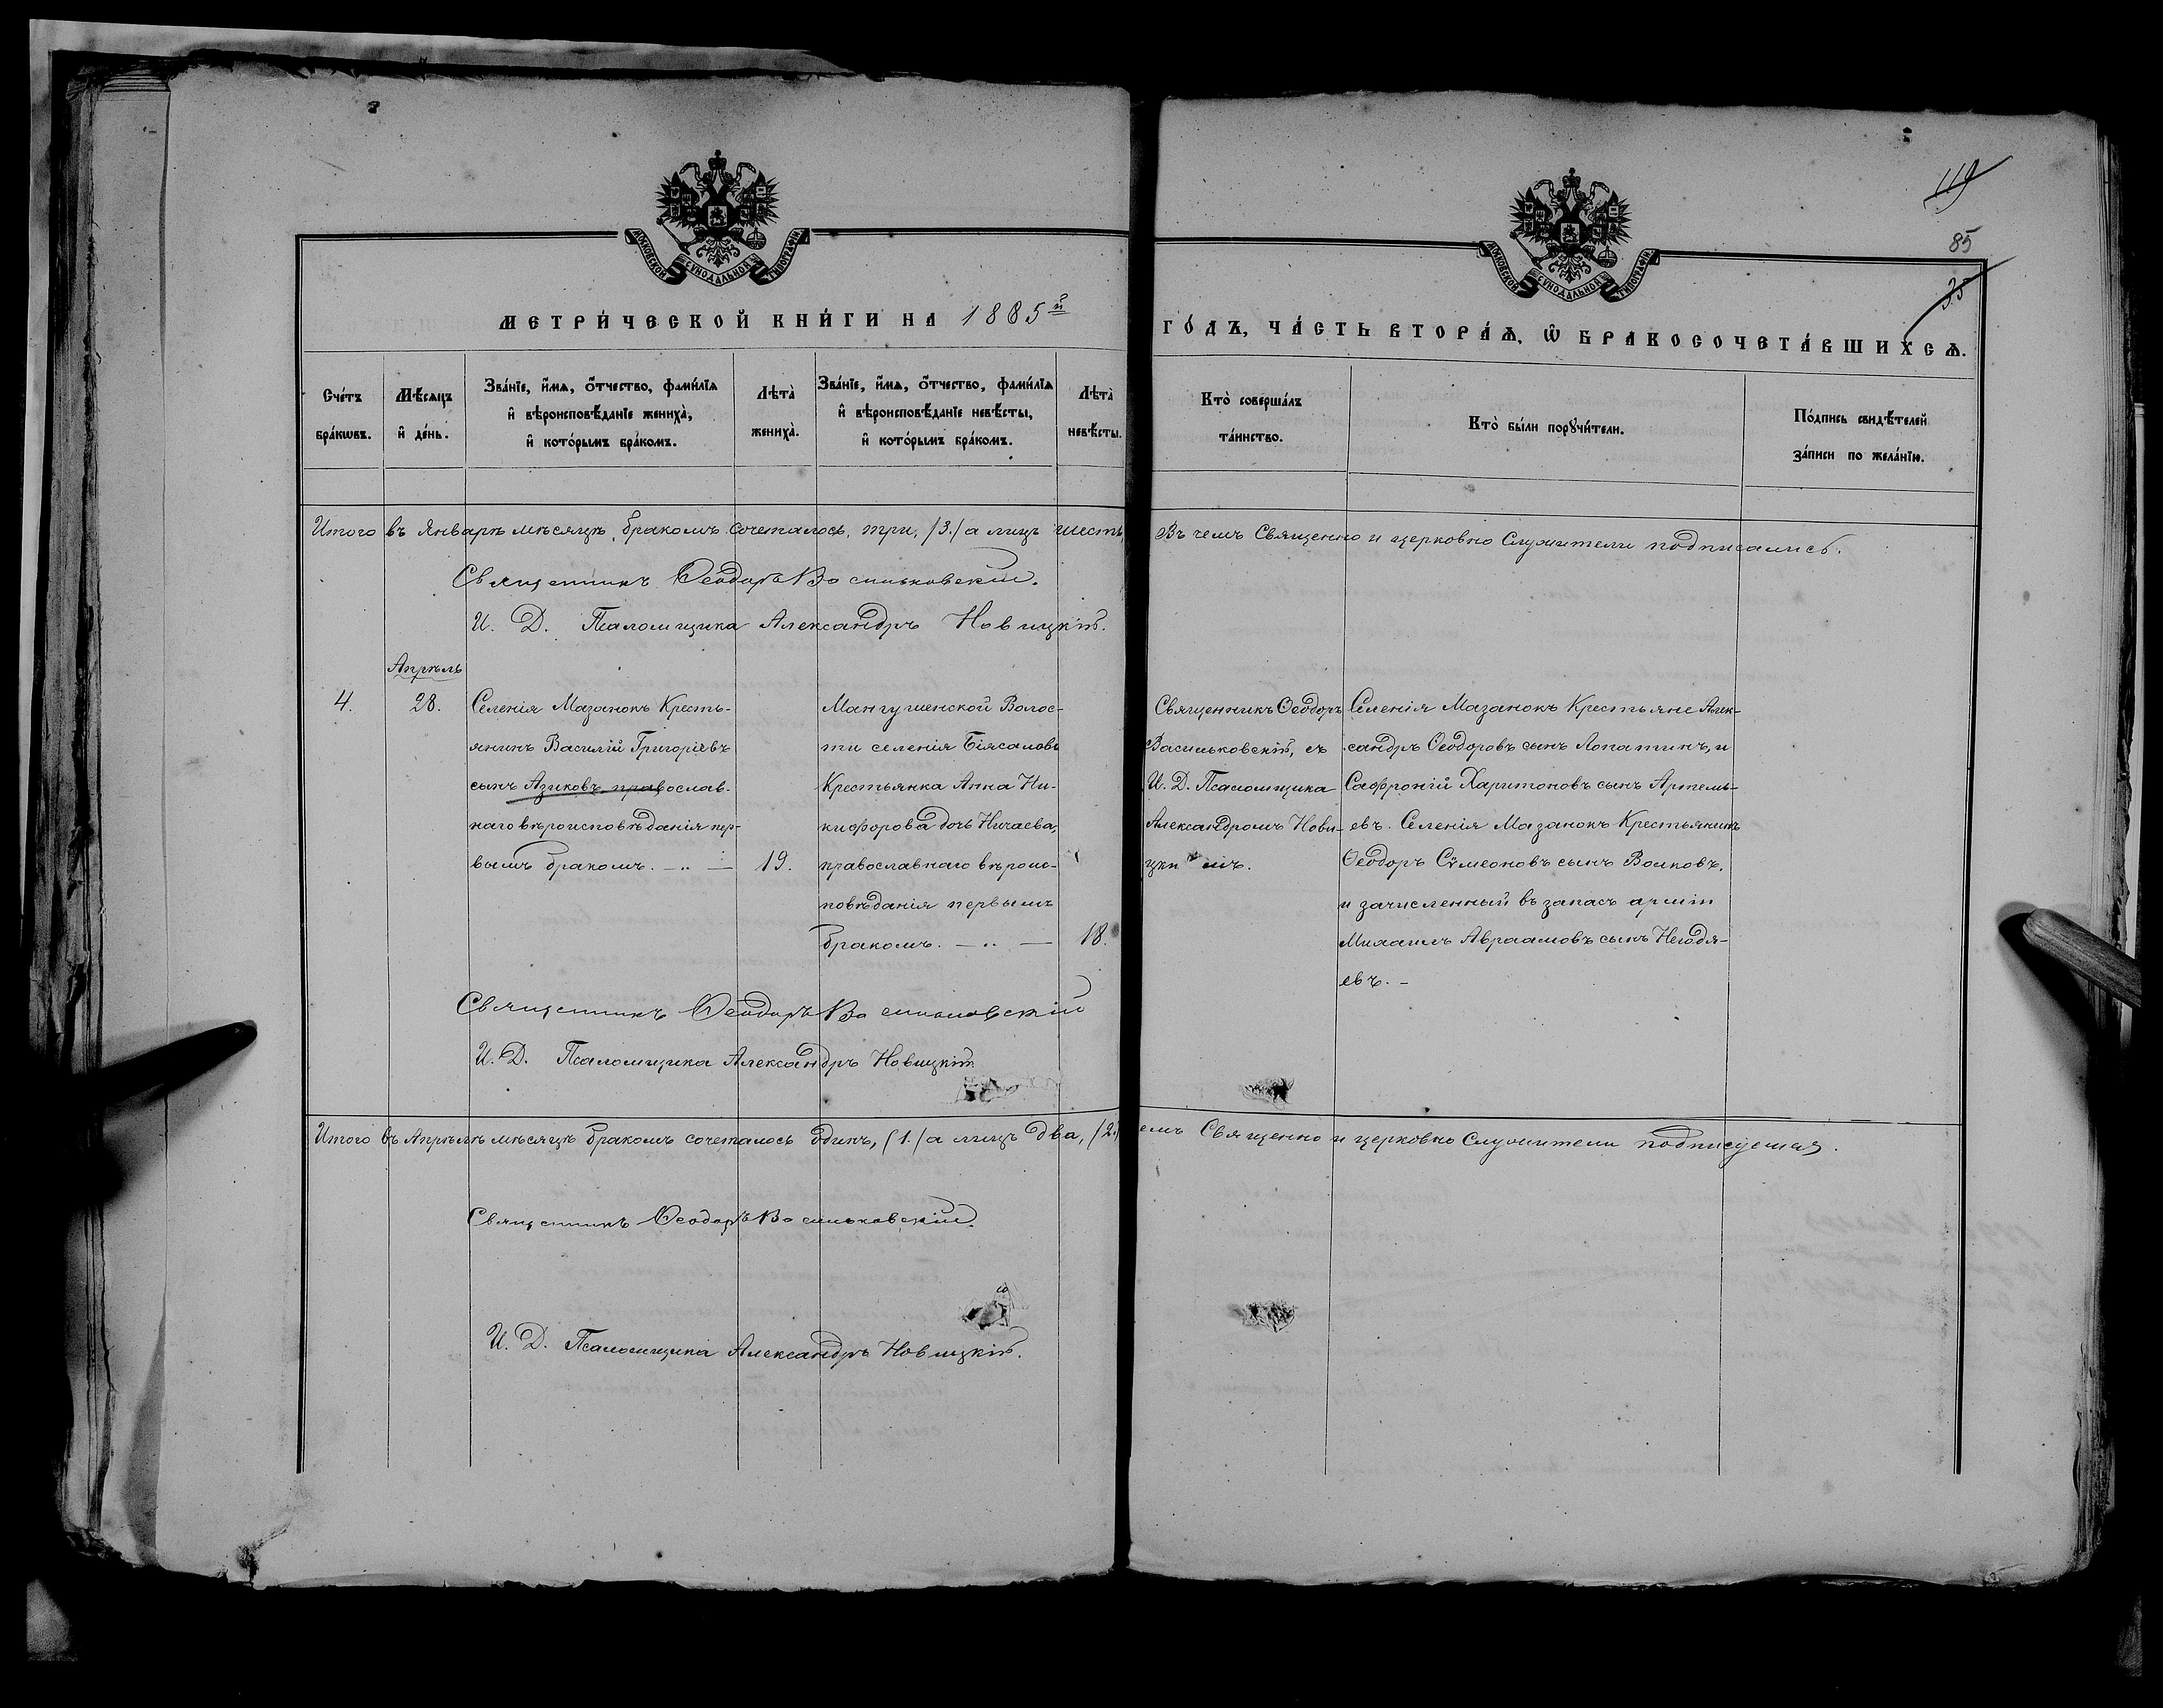 119
85
35
МОСКОВСКОЙ СѴНОДАЛЬНОЙ ТИПОГРАФІИ
МОСКОВСКОЙ СѴНОДАЛЬНОЙ ТИПОГРАФІИ
МЕТРИ́ЧЕСКОЙ КНИ́ГИ НА 1885й
ГО́ДЪ, ЧА́СТЬ ВТОРА́Ѧ, Ѡ БРАКОСОЧЕТА́ВШИХСѦ.
Сче́тъ бра́кѡвъ.
Мѣ́сѧцъ и҆ де́нь.
Зва́нїе, и҆́мѧ, ѻ҆́тчество, фами́лїѧ
и҆ вѣроисповѣ́данїе жениха̀,
и҆ кото́рымъ бра́комъ.
Лѣта̀ жениха̀.
Зва́нїе, и҆́мѧ, ѻ҆́тчество, фами́лїѧ
и҆ вѣроисповѣ́данїе невѣ́сты,
и҆ кото́рымъ бра́комъ.
Лѣта̀ невѣ́сты.
Кто̀ соверша́лъ
та́инство.
Кто̀ бы́ли порꙋчи́тели.
По́дпись свидѣ́телей
за́писи по жела́нїю.
Итого въ Январѣ мѣсяцѣ, бракомъ сочеталось, три, /3./ а лицъ шесть
Въ чемъ Священно и церковно Служители подписались.
Священникъ Ѳеодоръ Васильковскій.
И. Д. Псаломщика Александръ Новицкій.
Апрѣль
4.
28.
Селенія Мазанокъ Кресть-
янинъ Василій Григоріевъ
сынъ Азиковъ православ-
наго вѣроисповѣданія пер-
вымъ бракомъ. — .. —
19.
Мангушенской Волос-
ти селенія Біясаловъ
Крестьянка Анна Ни-
кифорова дочь Ничаева,
православнаго вѣроис-
повѣданія первымъ
бракомъ. — .. —
18.
Священникъ Ѳеодоръ
Васильковскій, съ
И. Д. Псаломщика
Александромъ Нови-
цкимъ.
Селенія Мазанокъ Крестьяне Алек-
сандръ Ѳеодоровъ сынъ Лопатинъ, и
Сафроній Харитоновъ сынъ Артемь-
евъ. Селенія Мазанокъ Крестьянинъ
Ѳеодоръ Сѷмеоновъ сынъ Волковъ,
и зачисленный въ запасъ арміи
Михаилъ Авраамовъ сынъ Негодя-
евъ. –
Священникъ Ѳеодоръ Васильковскій
И. Д. Псаломщика Александръ Новицкій
Итого въ Апрѣлѣ мѣсяцѣ бракомъ сочеталось одинъ, /1./ а лицъ два, /2./
емъ Священно и церковно Служители подписуемся.
Священникъ Ѳеодоръ Васильковскій.
И. Д. Псаломщика Александръ Новицкій.